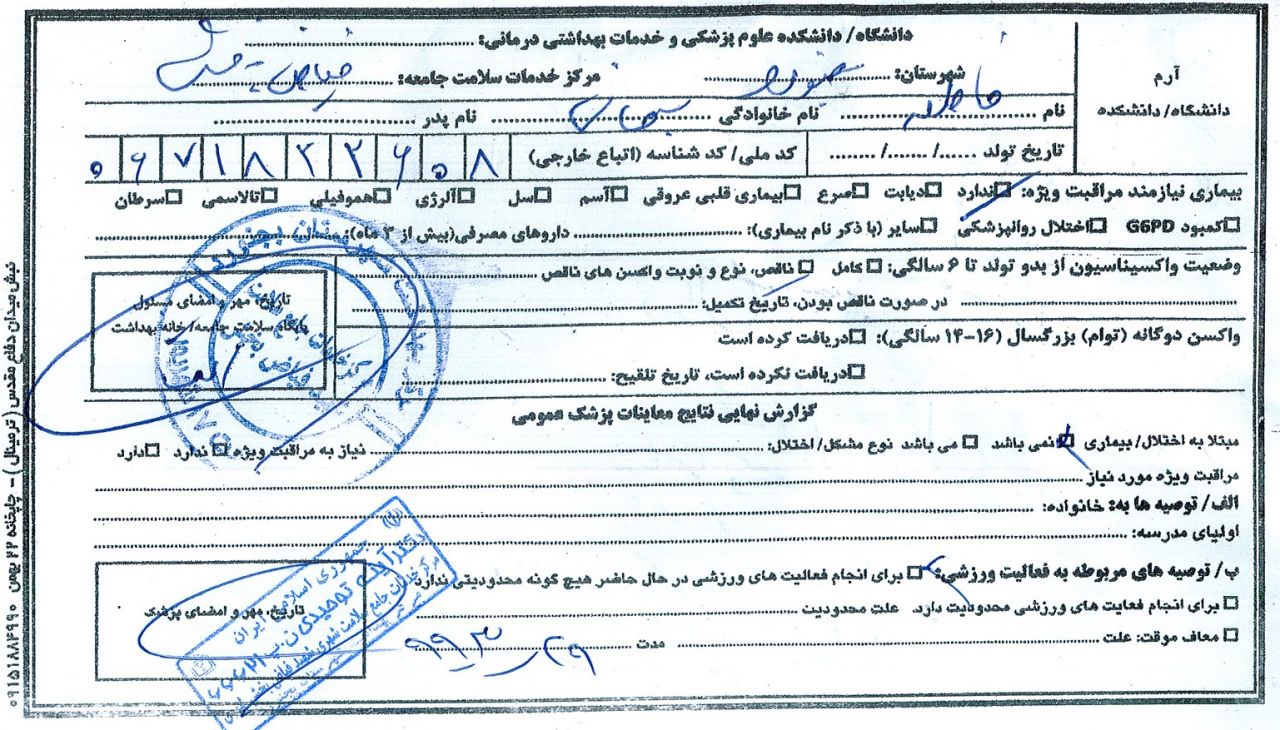 دانشگاه/ دانشکده علوم پزشکی و خدمات بهداشتی درمانی: ........................................
آرم
دانشگاه/ دانشکده
شهرستان: بجنورد مرکز خدمات سلامت جامعه: فیاض بخش
نام فاطمه نام خانوادگی ........................ نام پدر ........................
تاریخ تولد ....../ ......./ ........ کد ملی/ کد شناسه (اتباع خارجی) ۰۶۷۱۸۳۲۶۵۸
بیماری نیازمند مراقبت ویژه: ☐ندارد ☐دیابت ☐صرع ☐بیماری قلبی عروقی ☐آسم ☐سل ☐آلرژی ☐هموفیلی ☐تالاسمی ☐سرطان
☐کمبود G6PD ☐اختلال روانپزشکی ☐سایر (با ذکر نام بیماری): ........................ داروهای مصرفی(بیش از ۳ ماه): ........................
وضعیت واکسیناسیون از بدو تولد تا ۶ سالگی: ☐ کامل ☐ ناقص، نوع و نوبت واکسن های ناقص ........................
........................ در صورت ناقص بودن، تاریخ تکمیل: ........................
واکسن دوگانه (توام) بزرگسال (۱۶-۱۴ سالگی): ☐دریافت کرده است
☐دریافت نکرده است، تاریخ تلقیح: ........................
تاریخ، مهر و امضای مسئول
پایگاه سلامت جامعه/ خانه بهداشت
گزارش نهایی نتایج معاینات پزشک عمومی
مبتلا به اختلال/ بیماری ☐ نمی باشد ☐ می باشد نوع مشکل/ اختلال: ........................ نیاز به مراقبت ویژه ☐ ندارد ☐دارد
مراقبت ویژه مورد نیاز ........................
الف/ توصیه ها به: خانواده: ........................
اولیای مدرسه: ........................
ب/ توصیه های مربوطه به فعالیت ورزشی: ☐ برای انجام فعالیت های ورزشی در حال حاضر هیچ گونه محدودیتی ندارد
☐ برای انجام فعایت های ورزشی محدودیت دارد. علت محدودیت ........................
☐ معاف موقت: علت ........................ مدت ........................
تاریخ، مهر و امضای پزشک
جمهوری اسلامی ایران
نبش میدان دفاع مقدس (ترمینال) - چاپخانه ۲۲ بهمن ۰۹۱۵۱۸۸۴۹۹۰